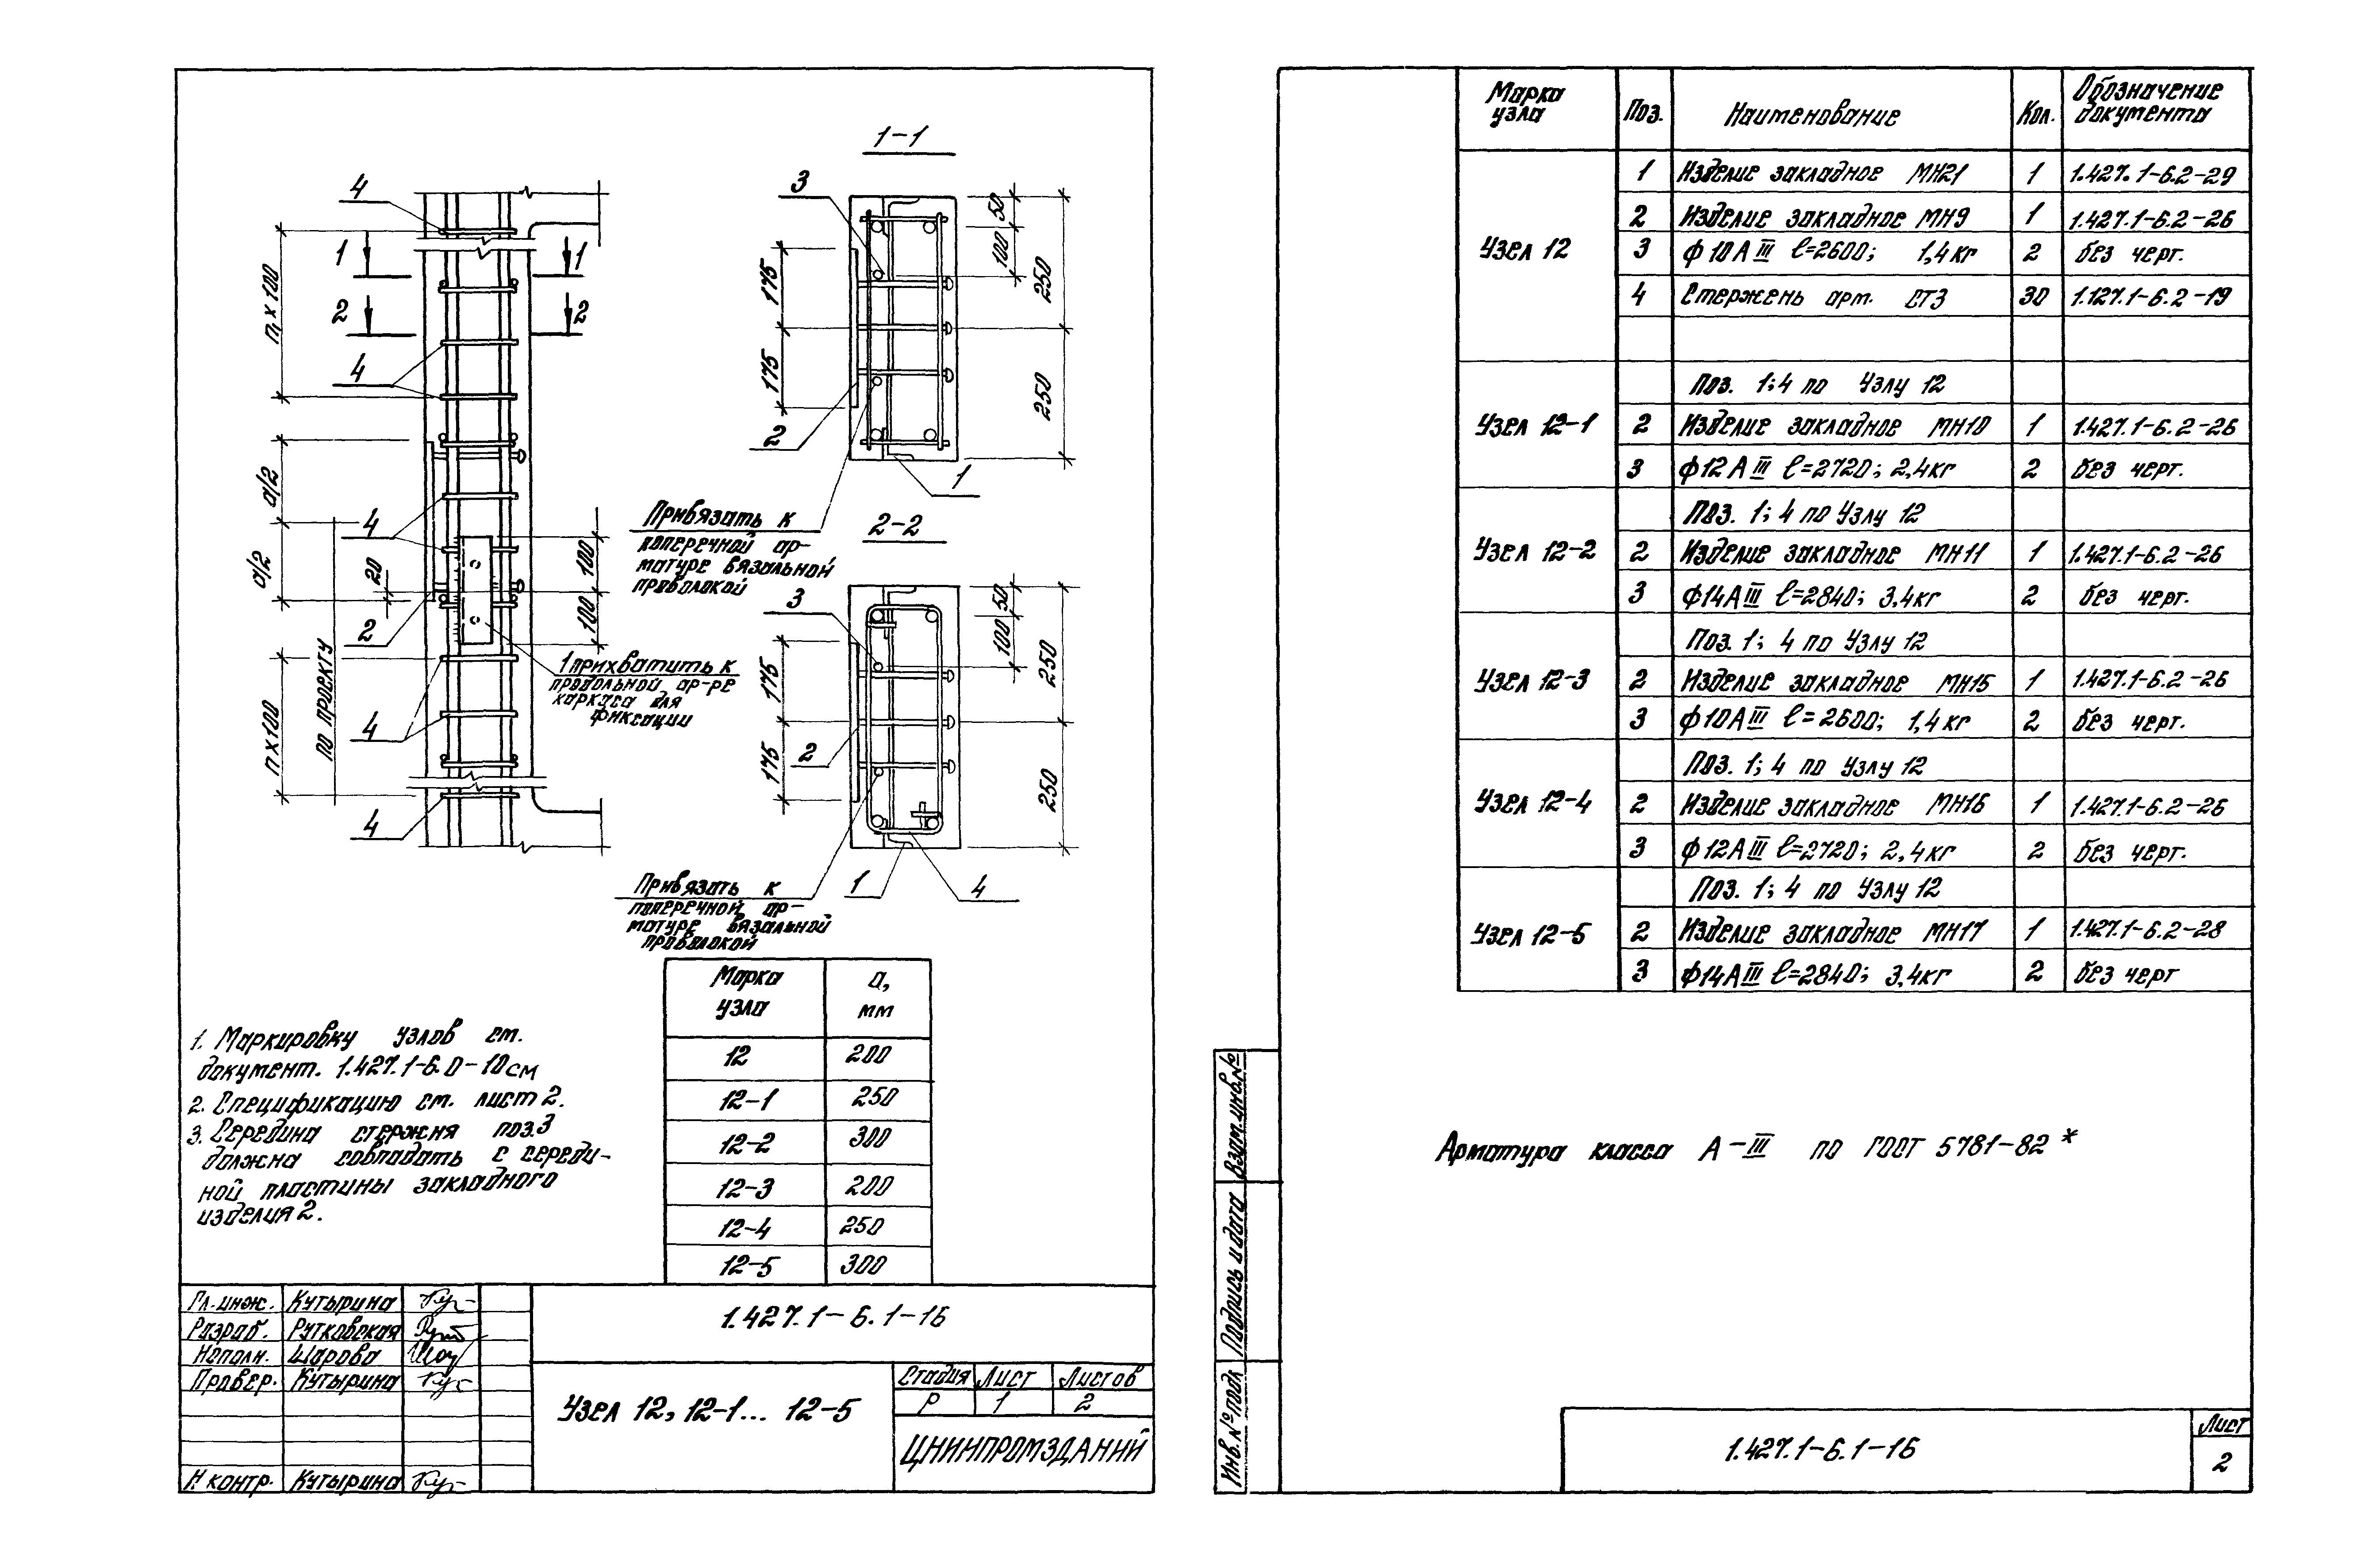 1-1
3
4
50
100
250
1
1
175
2
2
n×100
175
4
250
2
1
а/2
Привязать к
поперечной ар-
матуре вязальной
проволокой
2-2
4
а/2
20
100
100
2
3
50
100
250
175
1 прихватить к
продольной ар-ре
каркаса для
фиксации
по проекту
n×100
4
2
175
250
4
Привязать к
поперечной ар-
матуре вязальной
проволокой
1
4
Марка узла а, мм
12 200
12-1 250
12-2 300
12-3 200
12-4 250
12-5 300
1. Маркировку узлов см.
документ. 1.427.1-6.0-10см
2. Спецификацию см. лист 2.
3. Середина стержня поз.3
должна совпадать с середи-
ной пластины закладного
изделия 2.
Гл. инж. Кутырина
Разраб. Рутковская
Исполн. Шарова
Провер. Кутырина
Н.контр. Кутырина
1.427.1-6.1-16
Узел 12, 12-1... 12-5
Стадия Лист Листов
Р 1 2
ЦНИИПРОМЗДАНИЙ
Марка узла Поз. Наименование Кол. Обозначение документа
Узел 12
1 Изделие закладное МН21 1 1.427.1-6.2-29
2 Изделие закладное МН9 1 1.427.1-6.2-26
3 ф10АIII ℓ=2600; 1,4кг 2 без черт.
4 Стержень арм. СТ3 30 1.127.1-6.2-19
Узел 12-1
Поз. 1; 4 по Узлу 12
2 Изделие закладное МН10 1 1.427.1-6.2-26
3 ф12АIII ℓ=2720; 2,4кг 2 без черт.
Узел 12-2
Поз. 1; 4 по Узлу 12
2 Изделие закладное МН11 1 1.427.1-6.2-26
3 ф14АIII ℓ=2840; 3,4кг 2 без черт.
Узел 12-3
Поз. 1; 4 по Узлу 12
2 Изделие закладное МН15 1 1.427.1-6.2-26
3 ф10АIII ℓ=2600; 1,4кг 2 без черт.
Узел 12-4
Поз. 1; 4 по Узлу 12
2 Изделие закладное МН16 1 1.427.1-6.2-26
3 ф12АIII ℓ=2720; 2,4кг 2 без черт.
Узел 12-5
Поз. 1; 4 по Узлу 12
2 Изделие закладное МН17 1 1.427.1-6.2-28
3 ф14АIII ℓ=2840; 3,4кг 2 без черт
Арматура класса А-III по ГОСТ 5781-82*
Взам.инв.№
Подпись и дата
Инв.№ подл
1.427.1-6.1-16
Лист
2